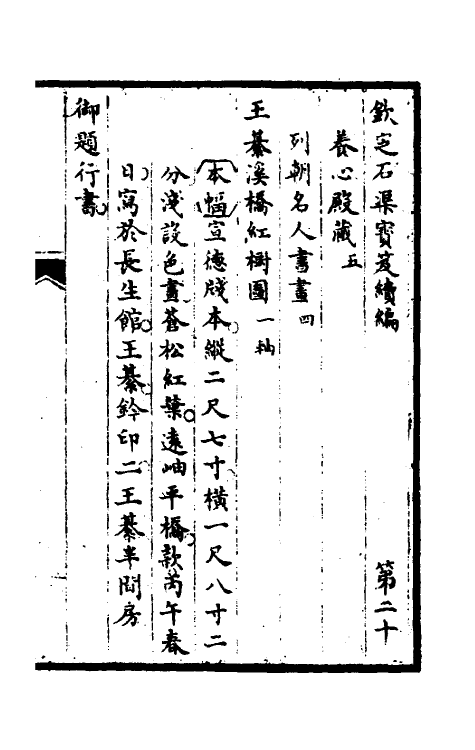 欽定石渠寶笈續編 第二十
養心殿藏五
列朝名人書畫四
王綦溪橋紅樹圖一軸
本幅宣德牋本縱二尺七寸橫一尺八寸二
分淺設色畫蒼松紅葉遠岫平橋款丙午春
日寫於長生館王綦鈐印二王綦半間房
御題行書